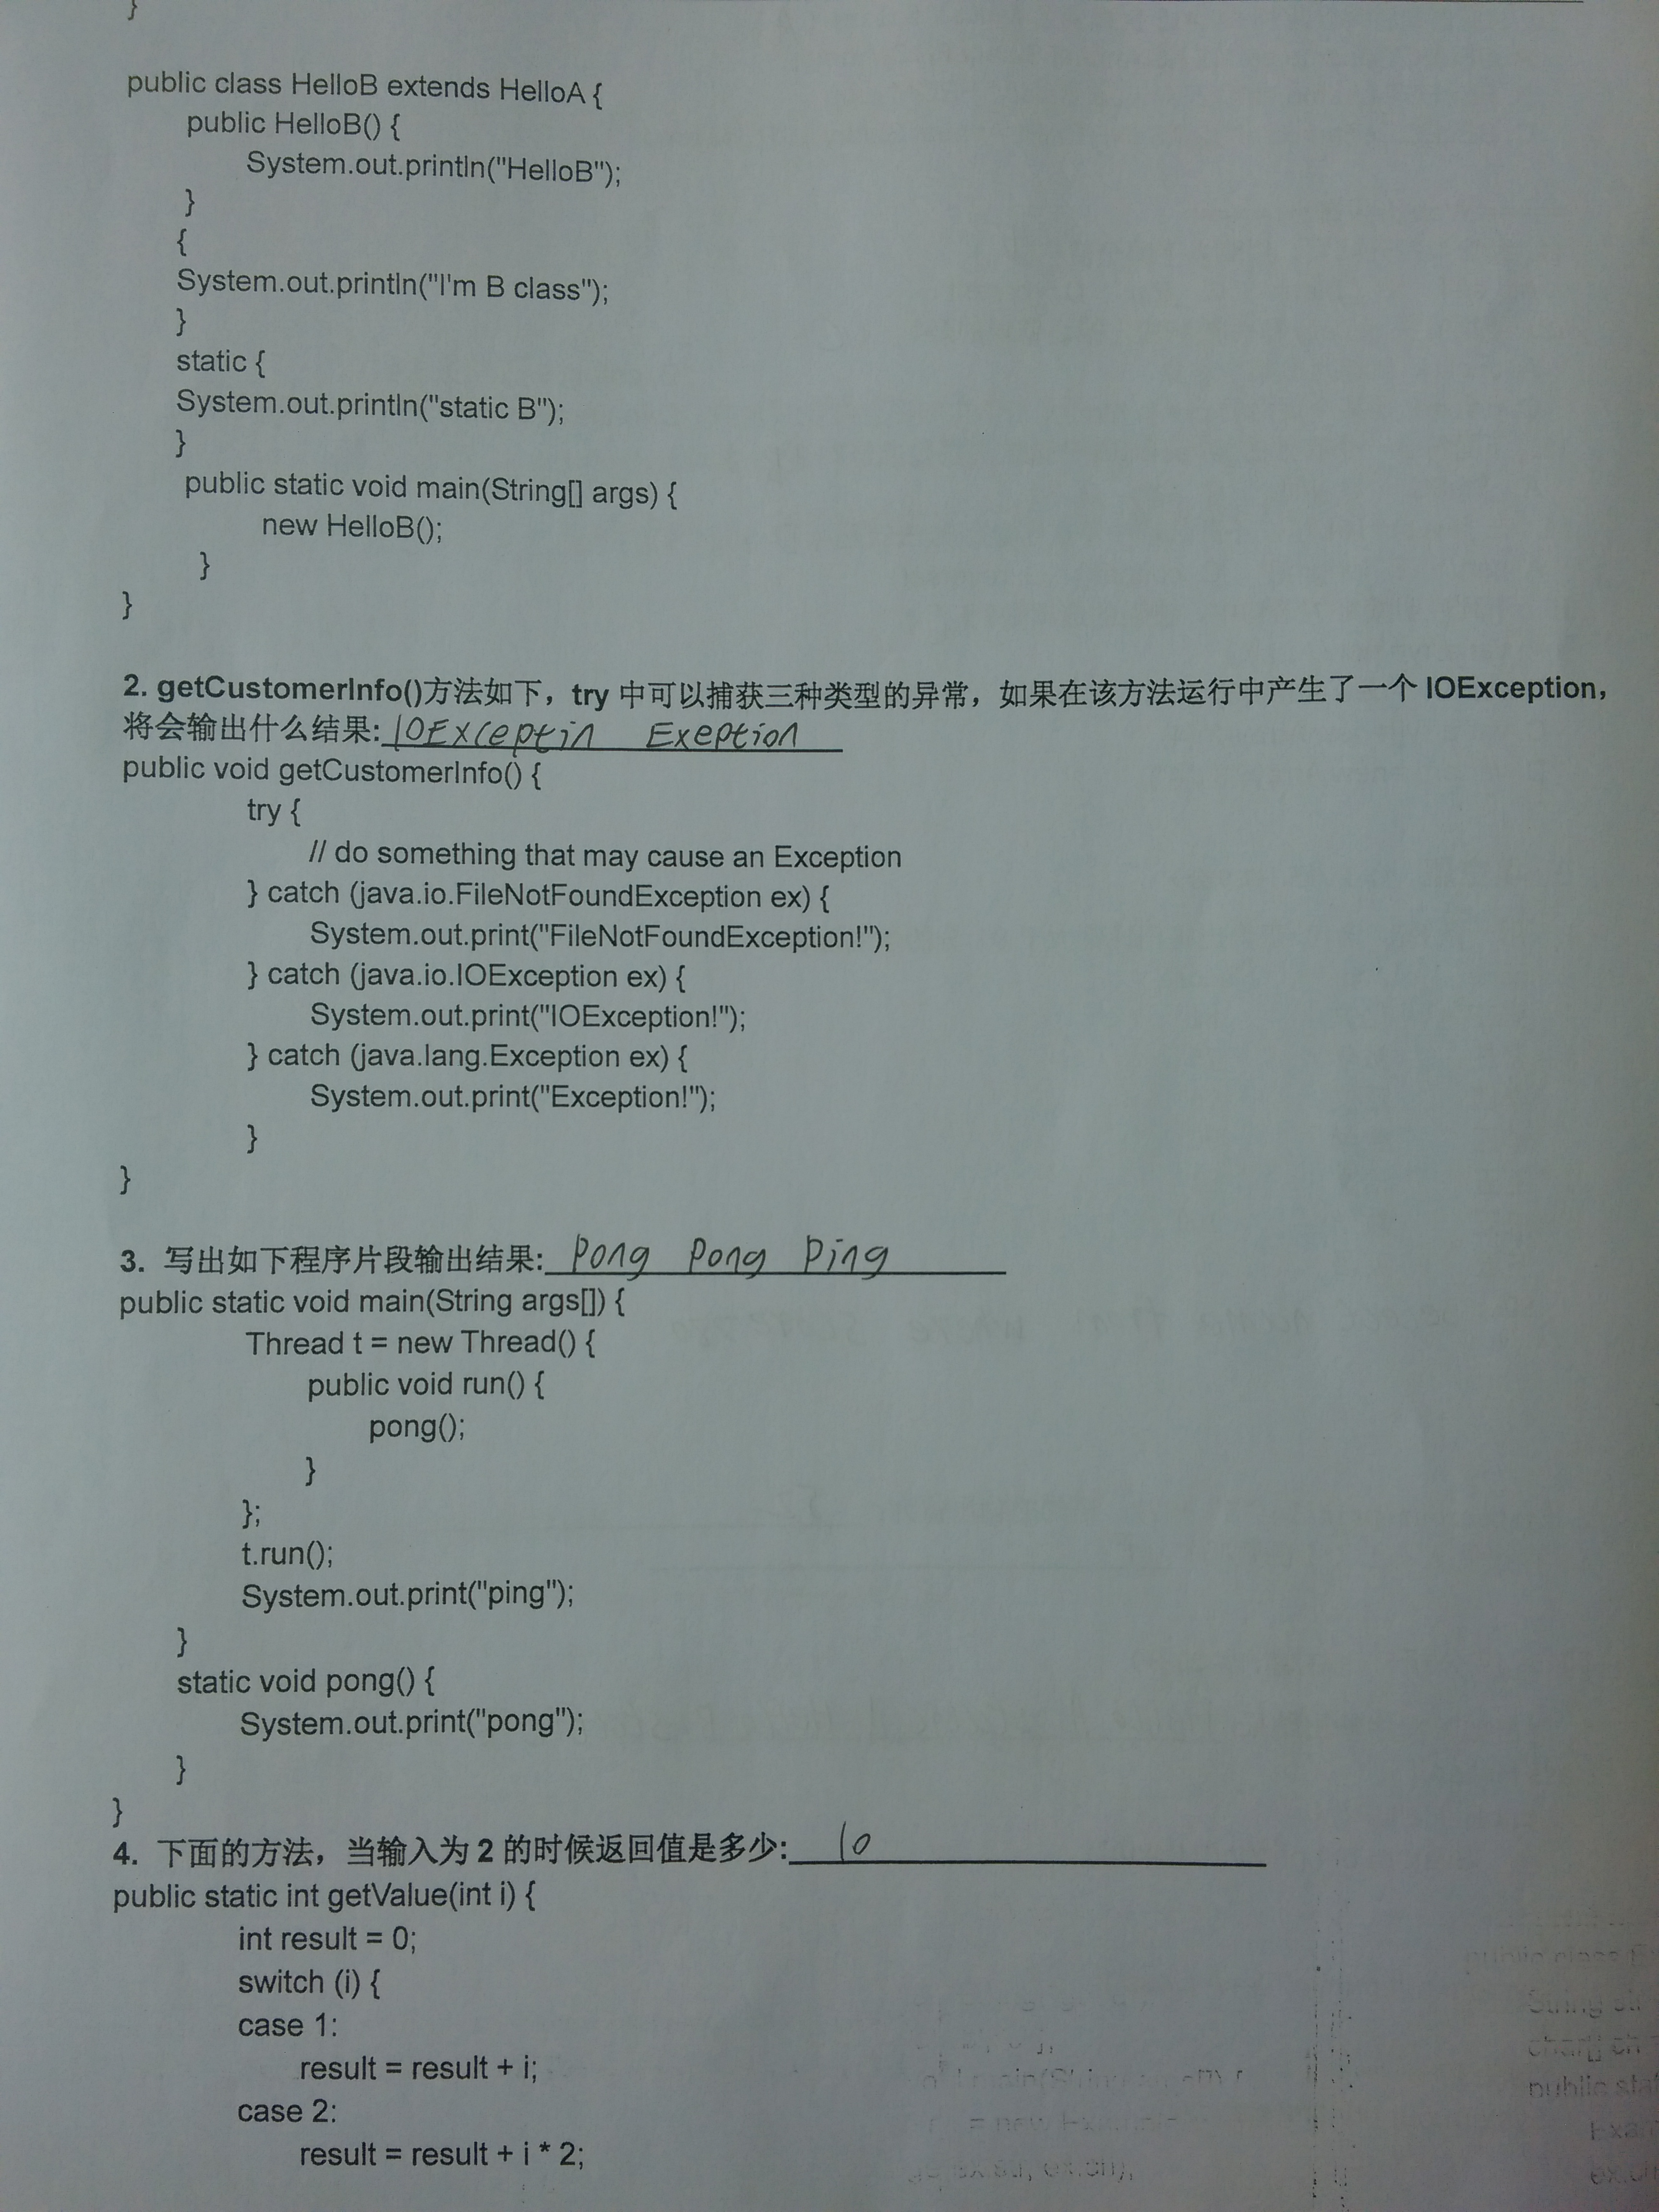 }
public class HelloB extends HelloA {
public HelloB() {
System.out.println("HelloB");
}
{
System.out.println("I'm B class");
}
static {
System.out.println("static B");
}
public static void main(String[] args) {
new HelloB();
}
}
2. getCustomerInfo()方法如下，try 中可以捕获三种类型的异常，如果在该方法运行中产生了一个 IOException，
将会输出什么结果: IOExceptin Exeption
public void getCustomerInfo() {
try {
// do something that may cause an Exception
} catch (java.io.FileNotFoundException ex) {
System.out.print("FileNotFoundException!");
} catch (java.io.IOException ex) {
System.out.print("IOException!");
} catch (java.lang.Exception ex) {
System.out.print("Exception!");
}
}
3. 写出如下程序片段输出结果: Pong Pong Ping
public static void main(String args[]) {
Thread t = new Thread() {
public void run() {
pong();
}
};
t.run();
System.out.print("ping");
}
static void pong() {
System.out.print("pong");
}
}
4. 下面的方法，当输入为 2 的时候返回值是多少: 10
public static int getValue(int i) {
int result = 0;
switch (i) {
case 1:
result = result + i;
case 2:
result = result + i * 2;